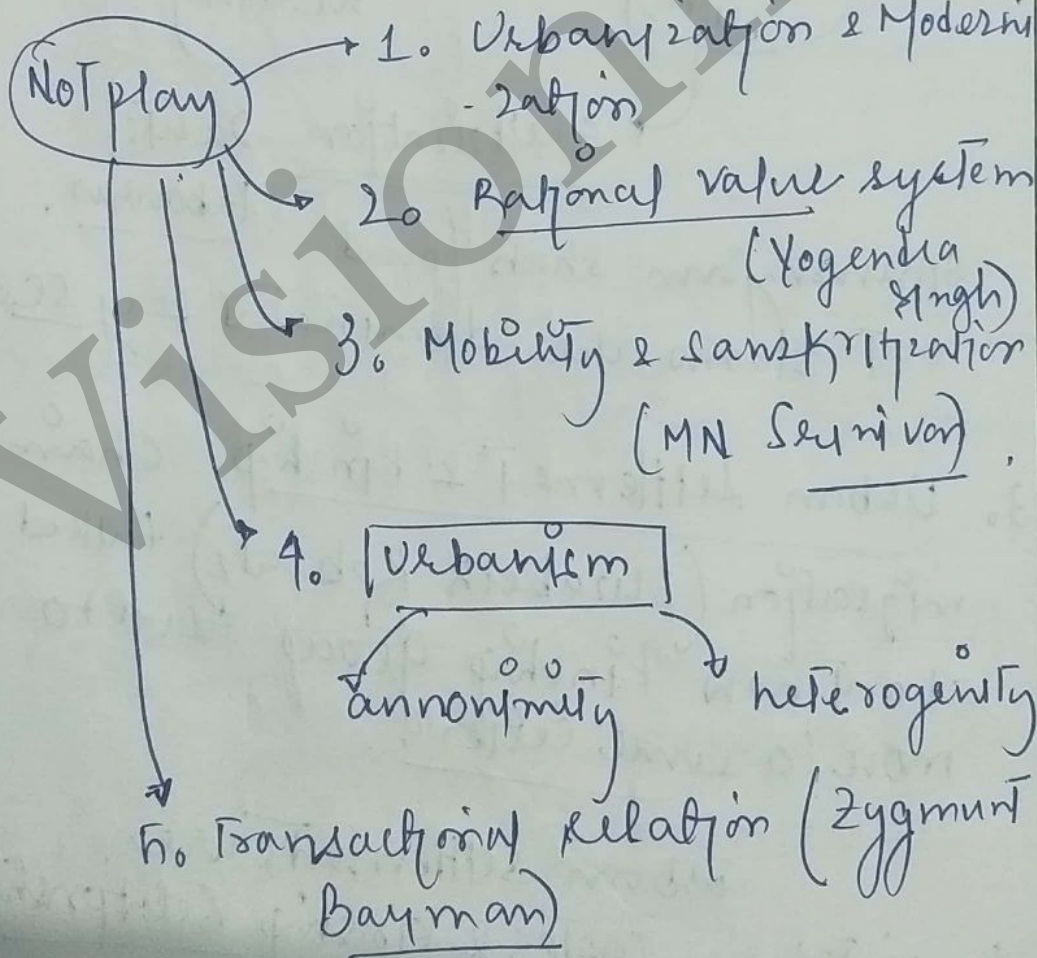 Not play
1. Urbanization & Moderni
-zation
2. Rational value system
(Yogendra
singh)
3. Mobility & sanskritization
(MN Srinivas).
4. Urbanism
annonimity heterogenity
5. Transactional relation (Zygmunt
Bayman)
Vision